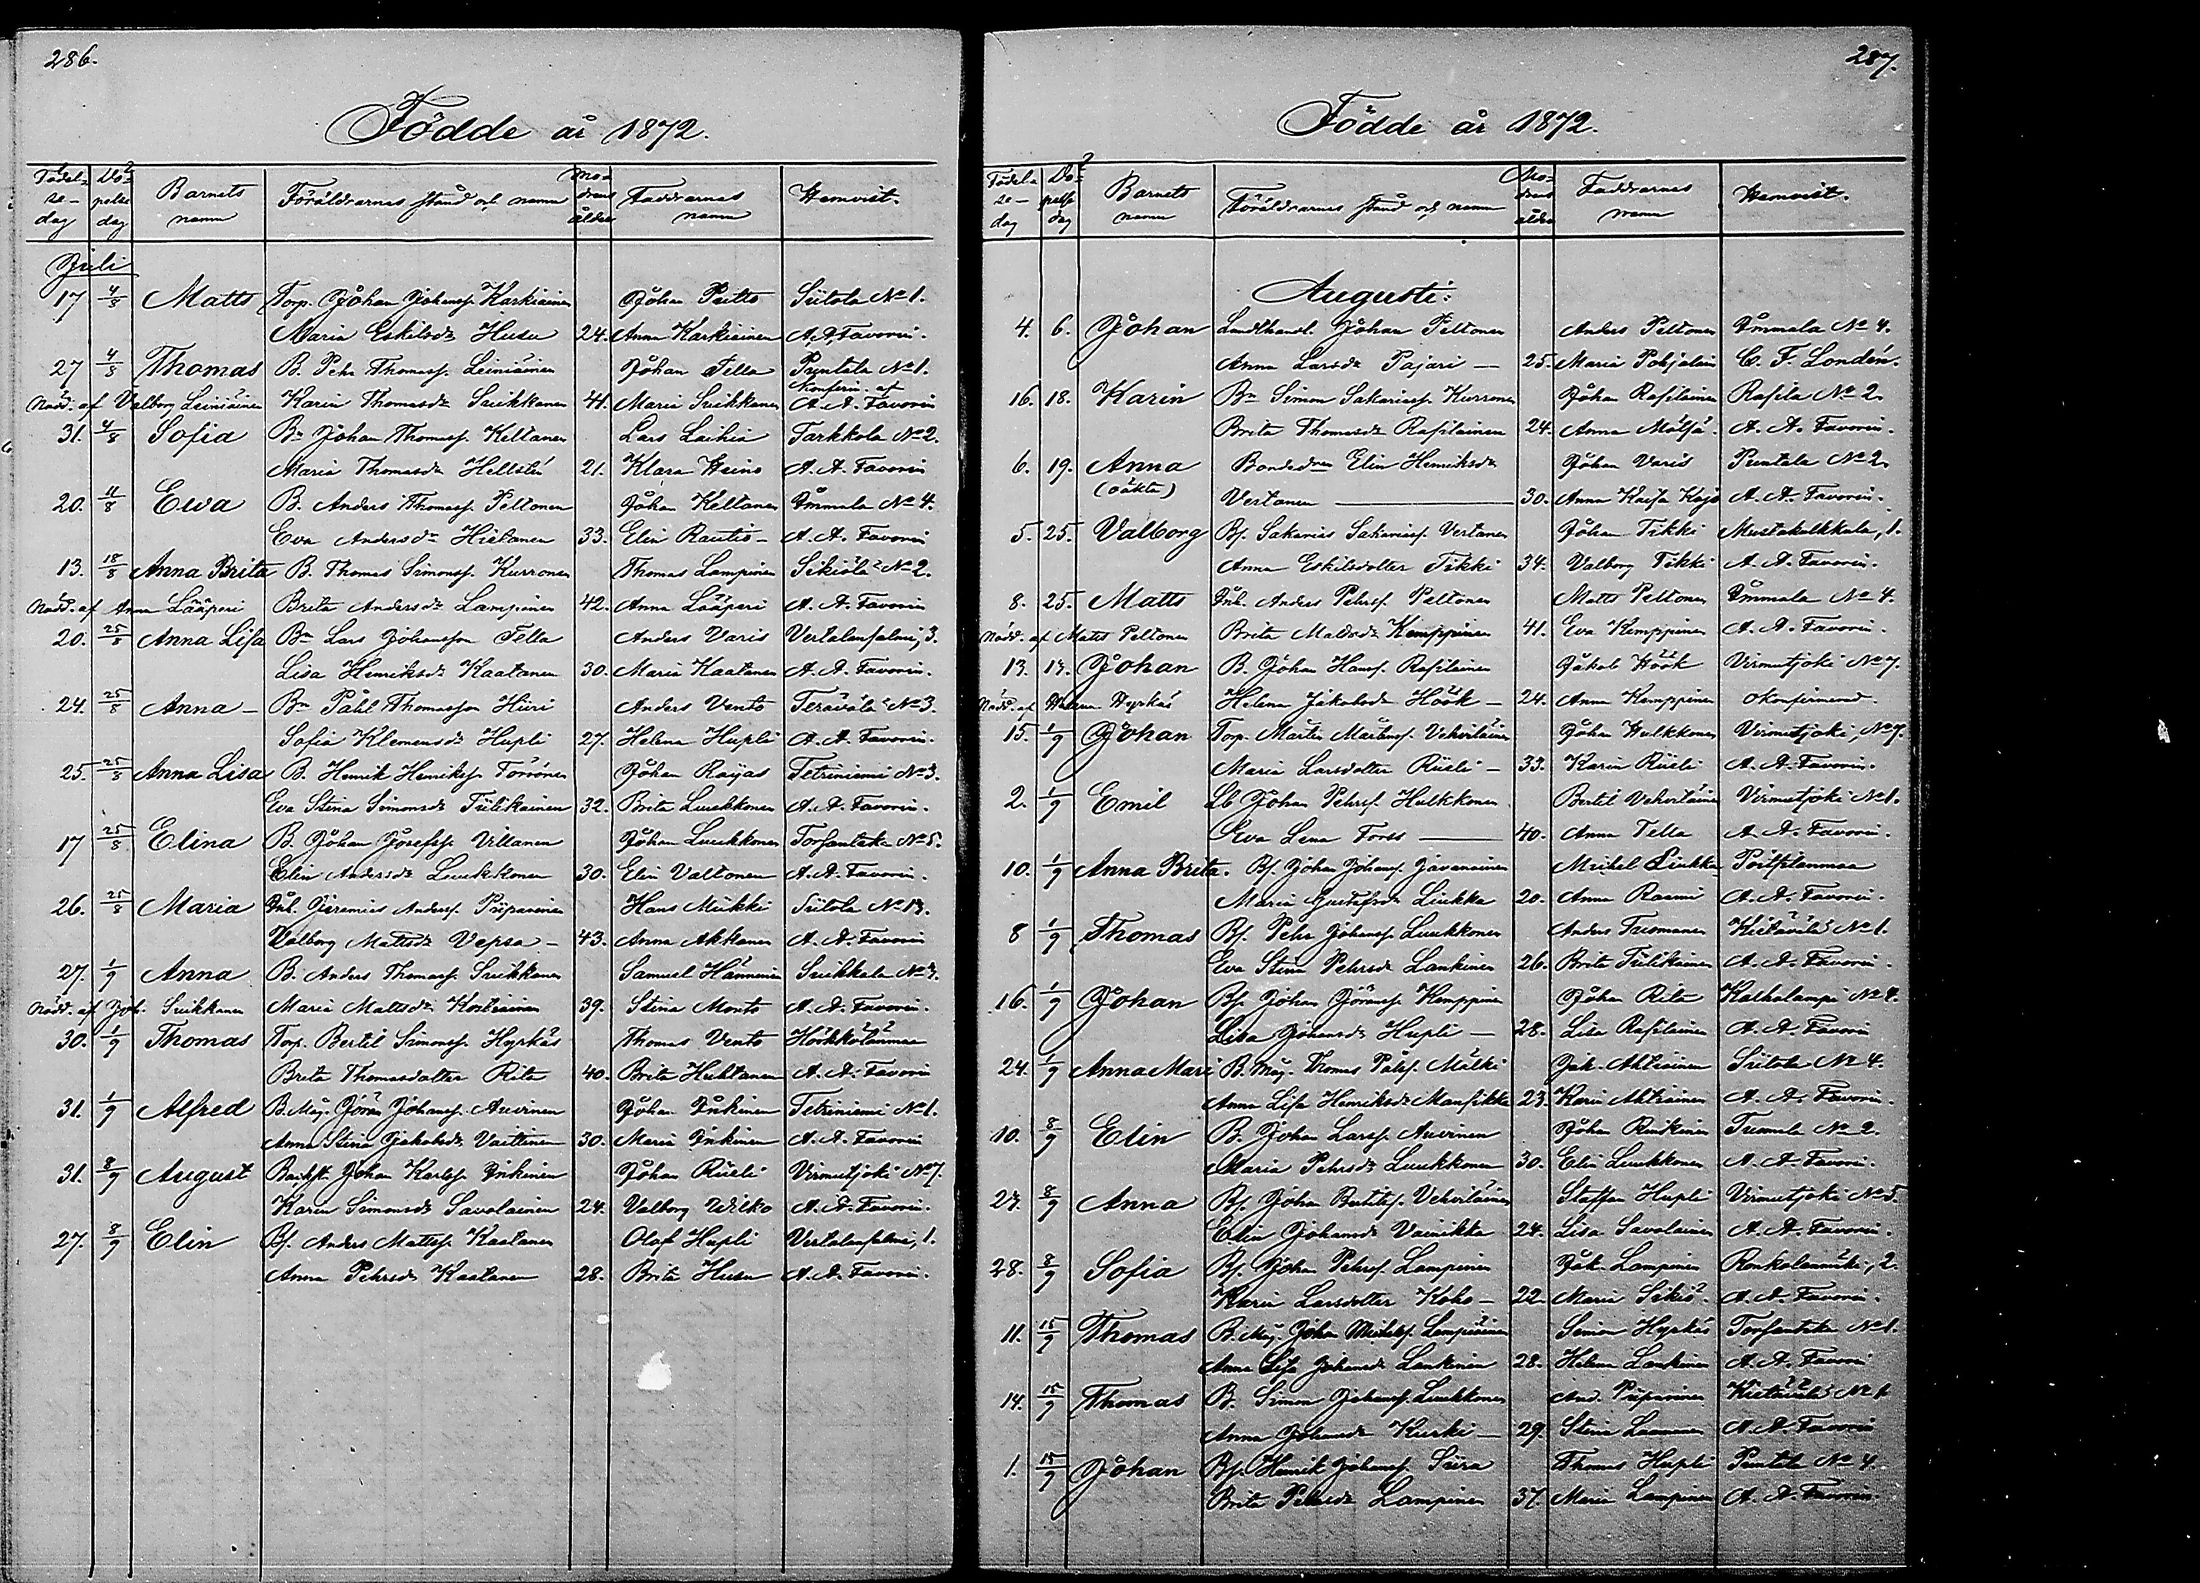 286.
Födde år 1872.
Födel- se- dag Dö- pelse dag Barnets namn Föräldrarnes stånd och namn Mo- drens ålder Faddrarnes namn Hemvist.
Juli
17 4/8 Matts Torp. Johan Johanss. Karkiainen Johan Pulto Siitola No 1.
Maria Eskilsdr Husu 24. Anna Karkiainen A. A. Favorin.
27 4/8 Thomas B. Pehr Thomass. Leiniäinen Johan Tella Puntala No 1.
Konferm. af
Nödd. af Valborg Leiniäinen Karin Thomasdr Suikkanen 41. Maria Suikkanen A. A. Favorin
31. 4/8 Sofia Bn Johan Thomass. Keltanen Lars Laihia Tarkkola No 2.
Maria Thomasdr Hellstén 21. Klara Heino A. A. Favorin
20. 11/8 Ewa B. Anders Thomass. Peltonen Johan Keltanen Immala No 4.
Eva Andersdr Hietanen 33. Elin Rautio- A. A. Favorin
13. 18/8 Anna Brita B. Thomas Simonss. Kurronen Thomas Lampinen Sikiölä No 2.
Nödd. af Anna Lääperi Brita Andersdr Lampinen 42. Anna Lääperi A. A. Favorin
20. 25/8 Anna Lisa Bn Lars Johansson Tella Anders Varis Vertalansalmi, 3.
Lisa Henriksdr Kaatanen 30. Maria Kaatanen A. A. Favorin.
24. 25/8 Anna- Bn Påhl Thomasson Hiiri Anders Vento Terävälä No 3.
Sofia Klemensdr Hupli 27. Helena Hupli A. A. Favorin.
25. 25/8 Anna Lisa B. Henrik Henrikss. Törrönen Johan Rayas Tetriniemi No 3.
Eva Stina Simonsdr Tiilikainen 32. Brita Luukkonen A. A. Favorin.
17 25/8 Elina B. Johan Josefss. Villanen Johan Luukkonen Torsantaka No 5.
Elin Andersdr Luukkonen 30. Elin Valtonen A. A. Favorin.
26. 25/8 Maria Inh. Jeremias Anderss. Piiparinen Hans Mikki Siitola No 13.
Valborg Mattsdr Vepsä- 43. Anna Akkanen A. A. Favorin
27. 1/9 Anna B. Anders Thomass. Suikkanen Samuel Hänninen Suikkala No 3.
Nödd. af Joh. Suikkanen Maria Mattsdr Kostiainen 39. Stina Monto A. A. Favorin.
30. 1/9 Thomas Torp. Bertil Simonss. Hyrkäs Thomas Vento Höökkölänmaa
Brita Thomasdotter Rita 40. Brita Huhtanen A. A. Favorin
31. 1/9 Alfred B. Måg. Göran Johanss. Auvinen Johan Inkinen Tetriniemi No 1.
Anna Stina Jakobsdr Vaittinen 30. Maria Inkinen A. A. Favorin
31. 8/9 August Backst. Johan Karlss. Inkinen Johan Rüeli Virmutjoki No 7.
Karin Simonsdr Savolainen 24. Valborg Wilko A. A. Favorin.
27. 8/9 Elin Bs. Anders Mattss. Kaatanen Olof Hupli Vertalansalmi, 1.
Anna Pehrsdr Kaatanen 28. Brita Husu A. A. Favorin.
287.
Födde år 1872.
Födel- se- dag Dö- pelse dag Barnets namn Föräldrarnes stånd och namn Mo- drens ålder Faddrarnes namn Hemvist.
Augusti:
4. 6. Johan Landthandl. Johan Peltonen Anders Peltonen Immala No 4.
Anna Larsdr Pajari - 25. Maria Pohjalain C. F. Londén.
16. 18. Karin Bn Simon Sakariass. Kurronen Johan Rasilainen Rasila No 2.
Brita Thomasdr Rasilainen 24. Anna Mälsä. A. A. Favorin.
6. 19. Anna Bondedren Elin Henriksdr Johan Varis Puntala No 2.
(oäkta) Vertanen 30. Anna Kaisa Kajo A. A. Favorin.
5. 25. Valborg Bs. Sakarias Sakariass. Vertanen Johan Tikki Mustakalkkala, 1.
Anna Eskilsdotter Tikki 34. Valborg Tikki A. A. Favorin.
8. 25. Matts Inh. Anders Pehrss. Peltonen Matts Peltonen Immala No 4.
Nödd. af Matts Peltonen Brita Mattsdr Kemppinen 41. Eva Kemppinen A. A. Favorin.
13. 13. Johan B. Johan Hanss. Rasilainen Jakob Höök Virmutjoki No 7.
Nödd. af Helena Hyrkäs Helena Jakobsdr Höök - 24. Anna Kemppinen okonfirmerad.
15. 1/9 Johan Torp. Mårten Mårtenss. Vehviläinen Johan Hulkkonen Virmutjoki, No 7.
Maria Larsdotter Rüeli - 33. Karin Rüeli A. A. Favorin.
2. 1/9 Emil Lb Johan Pehrss. Hulkkonen Bertil Vehviläinen Virmutjoki No 1.
Eva Lena Forss 40. Anna Tella A. A. Favorin.
10. 1/9 Anna Brita. Bs. Johan Johanss. Javanainen Mickel Liukka
Maria Gustafsdr Liukka 20. Anna Rasmi A. A. Favorin.
8 1/9 Thomas Bs. Pehr Johanss. Luukkonen Anders Tuomanen Kietävälä No 1.
Eva Stina Pehrsdr Lankinen 26. Brita Tiilikainen A. A. Favorin.
16. 1/9 Johan Bs. Johan Göranss. Kemppinen Johan Rita Kalkolampi No 4.
Lisa Johansdr Hupli - 28. Lisa Rasilainen A. A. Favorin
24. 1/9 Anna Mari B. Måg. Thomas Pålss. Mälki Jak. Ahtiainen Siitola No 4.
Anna Lisa Henriksdr Mansikka 23. Karin Ahtiainen A. A. Favorin.
10. 8/9 Elin B. Johan Larss. Auvinen Johan Rinkinen Tummala No 2.
Maria Pehrsdr Luukkonen 30. Elin Luukkonen A. A. Favorin.
27. 8/9 Anna Bs. Johan Bertilss. Vehviläinen Staffan Hupli Virmutjoki No 5.
Elin Johansdr Vainikka 24. Lisa Savolainen A. A. Favorin.
28. 8/9 Sofia Bs. Johan Pehrss. Lampinen Jak. Lampinen Ronkalanmäki, 2.
Karin Larsdotter Koho - 22. Maria Sikiö. A. A. Favorin.
11. 15/9 Thomas B. Måg. Johan Mickelss. Simon Hyrkäs Torsantaka No 1.
Anna Lisa Johansdr Lankinen 28. Helena Lankinen A. A. Favorin
14. 15/9 Thomas B. Simon Johanss. Luukkonen And. Piiparinen Kietävälä No 1.
Anna Johansdr Kurki - 29. Stina A. A. Favorin
1. 15/9 Johan Bs. Henrik Johanss. Siira Thomas Hupli Puntala No 4.
Brita Pehrsdr Lampinen 37. Maria Lampinen A. A. Favorin.